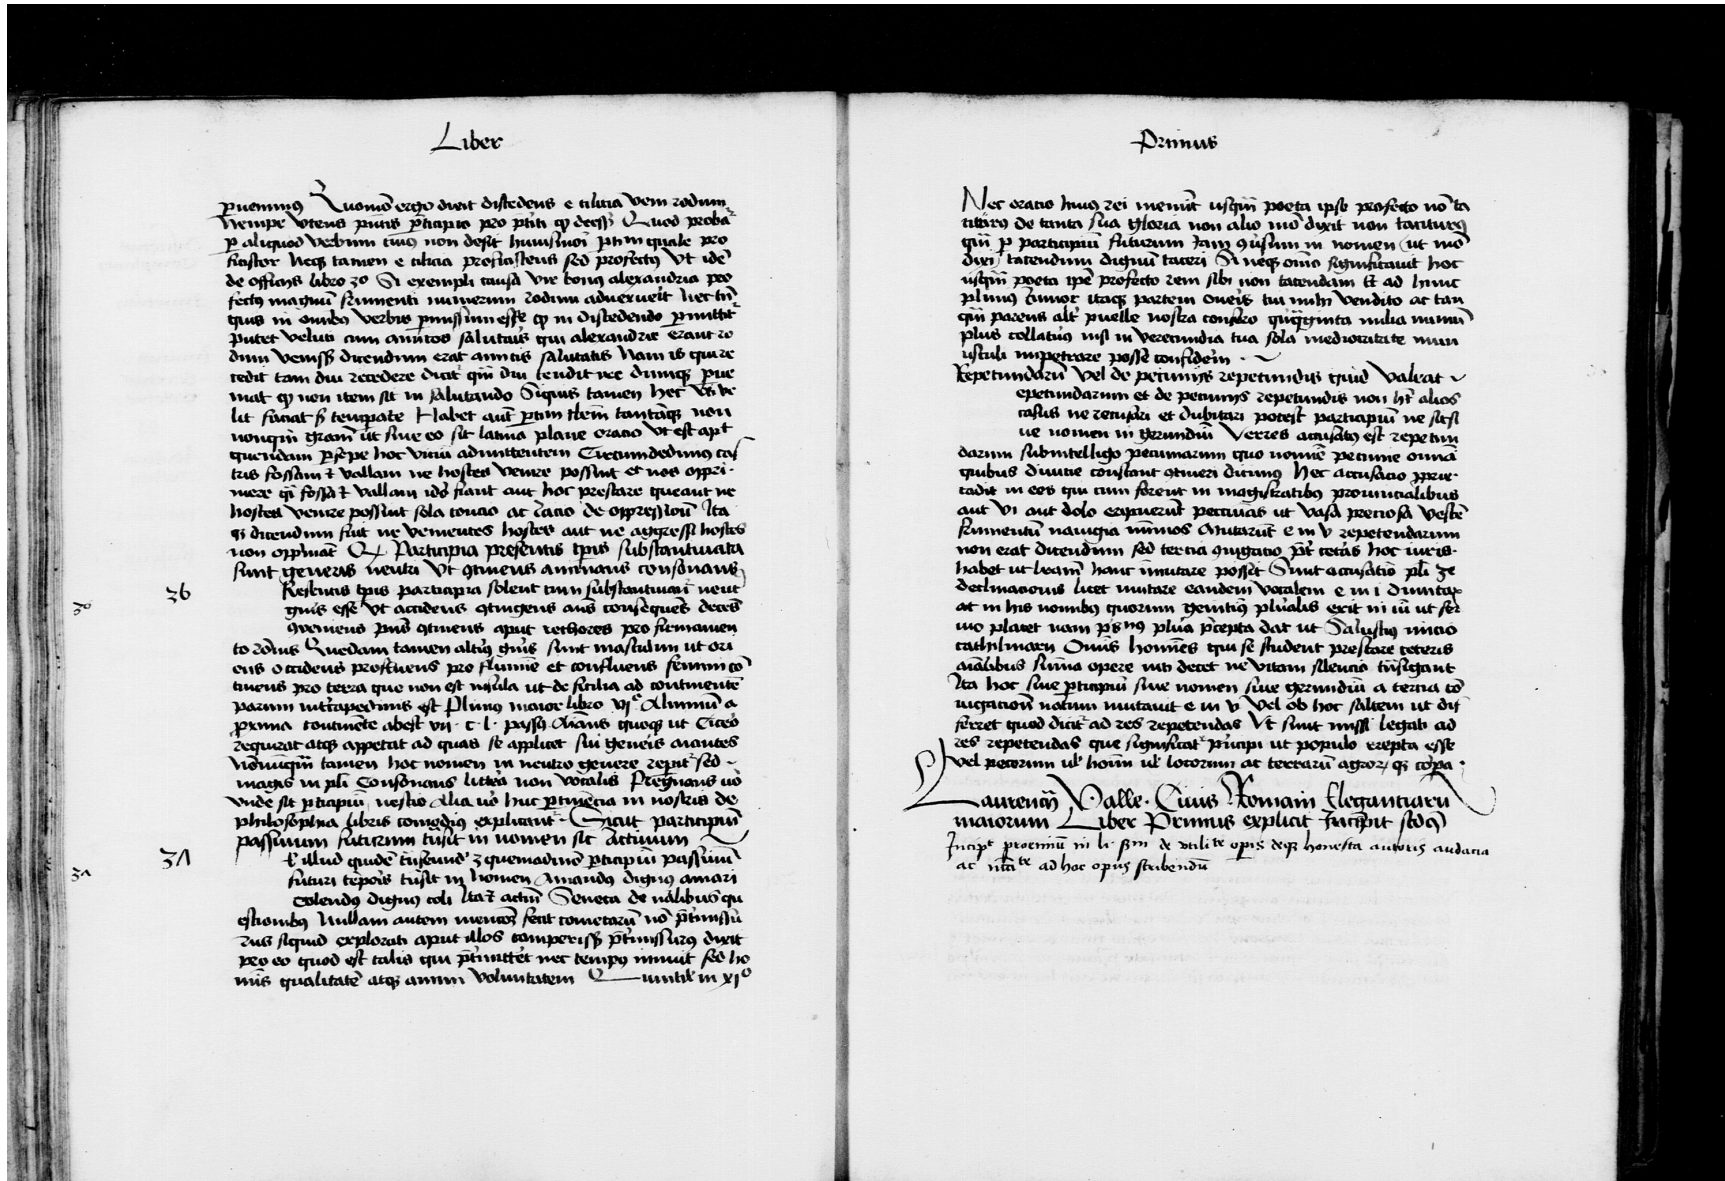 Liber
ꝑuenimus Quomō ergo dixit discedens e cilicia veni rodum
Nempe vtens pñtis ꝑticipio pro p̃titi Quod probat̃
ꝑ aliquod verbum cuius non desit huiusmōi ptm quale pro
ficiscor Neqꝫ tamen e cilicia proficiscens sed profectus Vt idē
de officijs libro 3º Si exempli causa vir bonus alexandria pro
fectus magnum frumenti numerum rodum aduexerit Nec tñ
quis in omibus verbis ꝑmissum esse qͦ in discedendo ꝑmittit̃
putet veluti cum amicos salutaueris qui alexandrie erant ro
dum venisse dicendum erat amicis salutatis Nam is qui re
cedit tam diu recedere dicit̃ qm̃ diu tendit nec dumqꝫ ꝑue
niat qͦ non item sit in salutando Siquis tamen hec vti ve
lit faciat sꝫ temperate Habet aut̃ ptm tantāqꝫ non
nunqm̃ grām ut sine eo sit latina plane oracio vt est aput
quendam ꝑsepe hoc viciū admittentem Circumdedimus cas
tris fossam et vallum ne hostes venire possint et nos oppri
mere qi fossa et vallum idō fiant aut hoc prestare queant ne
hostes venire possint sola concio ac r̄acio de oppressiōe Ita
qꝫ dicendum fuit ne venientes hostes aut ne aggressi hostes
non opp̃mat Participia presentis tp̄is substantiuata
sunt generis neutri vt 9tinens consonans
Presentis tp̄is participia solent cum substantiuant̃ neut
gn̄is esse vt accidens 9tingens ans consequēs decēs
9ueniens 9tinens aput rethores pro firmamen
to rōnis Quedam tamen altius gn̄is sunt masculini ut ori
ens occidens profluens pro flumīe et confluens feminī cō
tinens pro terra que non est insula ut de sicilia ad continentē
parum intrapedimus est Plinius maior libro vi Alumnū a
ꝓxima continēte abest vii · c · l · passꝫ Aians quoqꝫ ut Cicero
requirat atqꝫ appetat ad quas se applicet sui genēis aiantes
Nōnuqm̃ tamen hoc nomen in neutro genere reꝑit̃ sed
magis in pli Consonans littera non vocalis Pregnans vō
vnde sit ꝑticipiū nescio Alia vō huc ꝑtinēcia in nostris de
philosophia libris comodius explicant̃ · Sicut participium
passiuum futurum t̃nsit in nomen sic Actiuum
36
3º
Et illud quidē t̃nseund 3 quemadmō ꝑticipiū passiui
futuri tēpois t̃nsit in nomen Amandus dignus amari
Colendus dignus coli Ita et actiui Seneca de nālibus qu
estionibus Nullam autem mencōꝫ fecit cometarū nō p̃t̃missu
rus siquid explorati aput illos comperissꝫ p̃t̃missurus dixit
pro eo quod est talis qui p̃t̃mittet nec tempus innuit sed ho
minis qualitatē atqꝫ animi voluntatem Quintil in xiº
3Λ
3Λ
Primus
Nec oracio huius rei meminit usqm̃ poeta ipse profecto nō ta
citurus de tanta sua gloria non alio mō dixit non taciturus
qm̃ ꝑ participiū futurum Iam 9uisum in nomen ut mō
dixi tacendum dignū taceri Si neqꝫ omō significauit hoc
usqm̃ poeta ipē profecto rem sibi non tacendam Et ad hunc
plinius itaqꝫ partem oneris tui mihi vendico ac tan
qm̃ parens alt̃ puelle nostra confero quīqꝫginta milia numū
plus collaturus nisi in verecundia tua sola mediocritate mun
usculi impetrare posse confiderem ·
Repetundarū vel de pecunijs repetundis quid valeat
epetundarum et de pecunijs repetundis non ht̃ alios
casus ne recusari et dubitari potest participiū ne sit si
ue nomen in gerundiū Verres accusatus est repetun
darum subintelligo pecuniarum quo nomīe pecunie omīa
quibus diuicie constant 9tineri dicimus Hec accusacio ꝓprie
cadit in eos qui cum forent in magistratibus prouincialibus
aut vi aut dolo eripuerūt peccunias ut vasa preciosa vestē
frumentū nauigia nūmos Mutarūt e in v repetendarum
non erat dicendum sed tercia 9iugacio p̃t cetās hoc iuris
habet ut lrām hanc īmutare possit Sicut accusatiō pli 3e
declinacionis licet mutare eandem vocalem e in i diuntax
at in his nomībus quorum geintiuus pluralis exit in iū ut ser
mo placet nam plura p̃cepta dat ut Salustius inicio
cathilinarij Omīs homīes qui se student prestare ceteris
aialibus suma opere niti decet ne vitam silencio t̃nsigant
Ita hoc siue ꝑticipiū siue nomen siue gerundiū a tercia cō
iugacionī natum mutauit e in v Vel ob hoc saltem ut dif
ferret quod dicit̃ ad res repetendas Vt sunt missi legati ad
res repetendas que significat̃ p̃ncipi ut populo erepta esse
vel pecorum ul' hoīm ul' locorum ac terrarū agror, qꝫ corpa ·
Laurencij Valle · Ciuis Romani Elegantiarū
maiorum Liber Primus explicit Incipit scdꝫ
Incipt proemiū in li · scdm de vtilite operis deqꝫ honesta autoris audacia
ac ad hoc opus scribendū